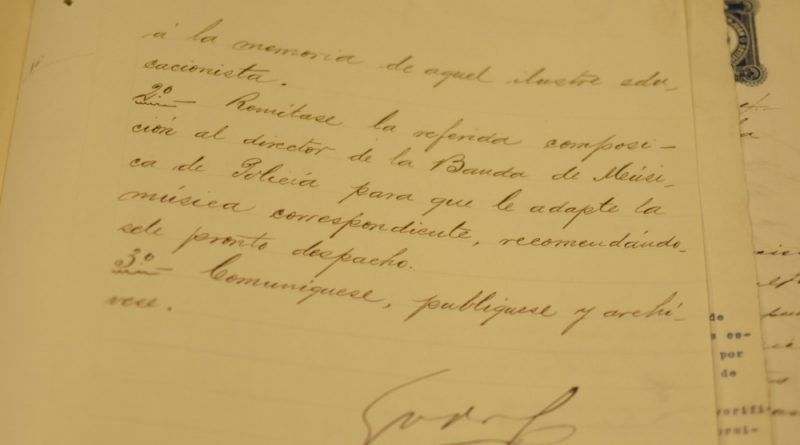 á la memoria de aquel ilustre edu-
cacionista.
2º Remítase la referida composi-
ción al director de la Banda de Músi-
ca de Policía para que le adapte la
música correspondiente, recomendándo-
sele pronto despacho.
3º Comuníquese, publíquese y archí-
vese.
de
s es-
por
de
verifi-